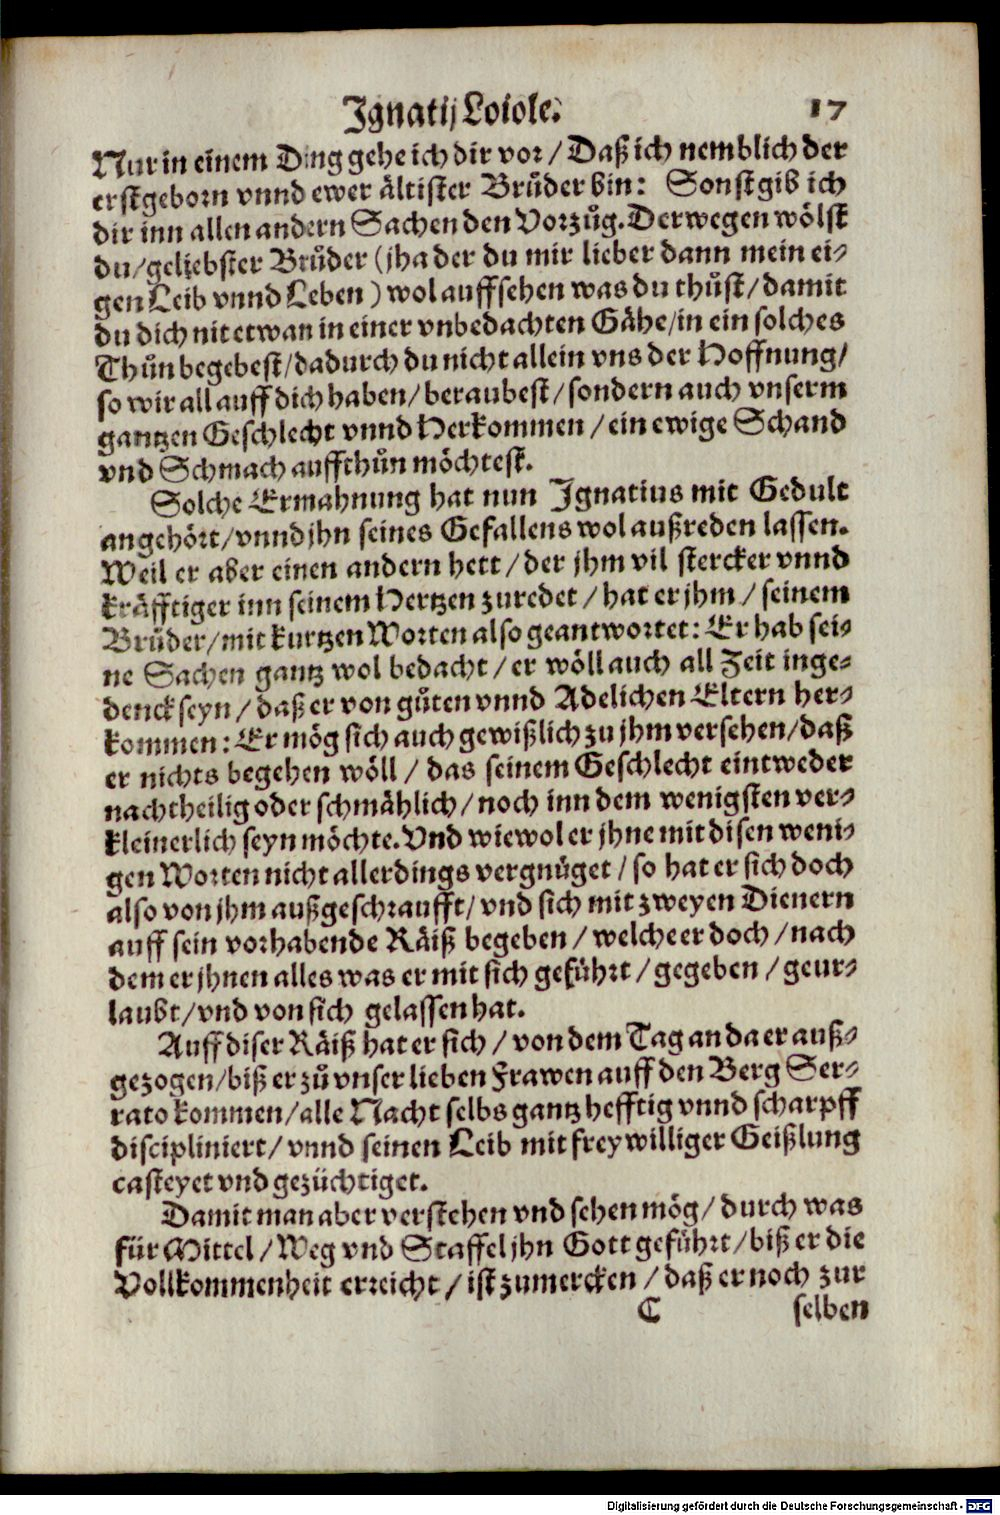 Ignatij Loiole. 17
Nur in einem Ding gehe ich dir vor / Daß ich nemblich der
erstgeborn vnnd ewer ältister Brůder bin: Sonst gib ich
dir inn allen andern Sachen den Vorzůg. Derwegen wölst
du / geliebster Brůder (jha der du mir lieber dann mein ei-
gen Leib vnnd Leben) wol auffsehen was du thůst / damit
du dich nit etwan in einer vnbedachten Gähe / in ein solches
Thůn begebest / dadurch du nicht allein vns der Hoffnung /
so wir all auff dich haben / beraubest / sondern auch vnserm
gantzen Geschlecht vnnd Herkommen / ein ewige Schand
vnd Schmach auffthůn möchtest.
Solche Ermahnung hat nun Ignatius mit Gedult
angehört / vnnd jhn seines Gefallens wol außreden lassen.
Weil er aber einen andern hett / der jhm vil stercker vnnd
kräfftiger inn seinem Hertzen zuredet / hat er jhm / seinem
Brůder / mit kurtzen Worten also geantwortet: Er hab sei-
ne Sachen gantz wol bedacht / er wöll auch all Zeit inge-
denck seyn / daß er von gůten vnnd Adelichen Eltern her-
kommen: Er mög sich auch gewißlich zu jhm versehen / daß
er nichts begehen wöll / das seinem Geschlecht eintweder
nachtheilig oder schmählich / noch inn dem wenigsten ver-
kleinerlich seyn möchte. Vnd wiewol er jhne mit disen weni-
gen Worten nicht allerdings vergnüget / so hat er sich doch
also von jhm außgeschraufft / vnd sich mit zweyen Dienern
auff sein vorhabende Räiß begeben / welche er doch / nach
dem er jhnen alles was er mit sich geführt / gegeben / geur-
laubt / vnd von sich gelassen hat.
Auff diser Räiß hat er sich / von dem Tag an da er auß-
gezogen / biß er zů vnser lieben Frawen auff den Berg Ser-
rato kommen / alle Nacht selbs gantz hefftig vnnd scharpff
discipliniert / vnnd seinen Leib mit freywilliger Geißlung
casteyet vnd gezüchtiget.
Damit man aber verstehen vnd sehen mög / durch was
für Mittel / Weg vnd Staffel jhn Gott geführt / biß er die
Vollkommenheit erreicht / ist zumercken / daß er noch zur
C selben
Digitalisierung gefördert durch die Deutsche Forschungsgemeinschaft - DFG